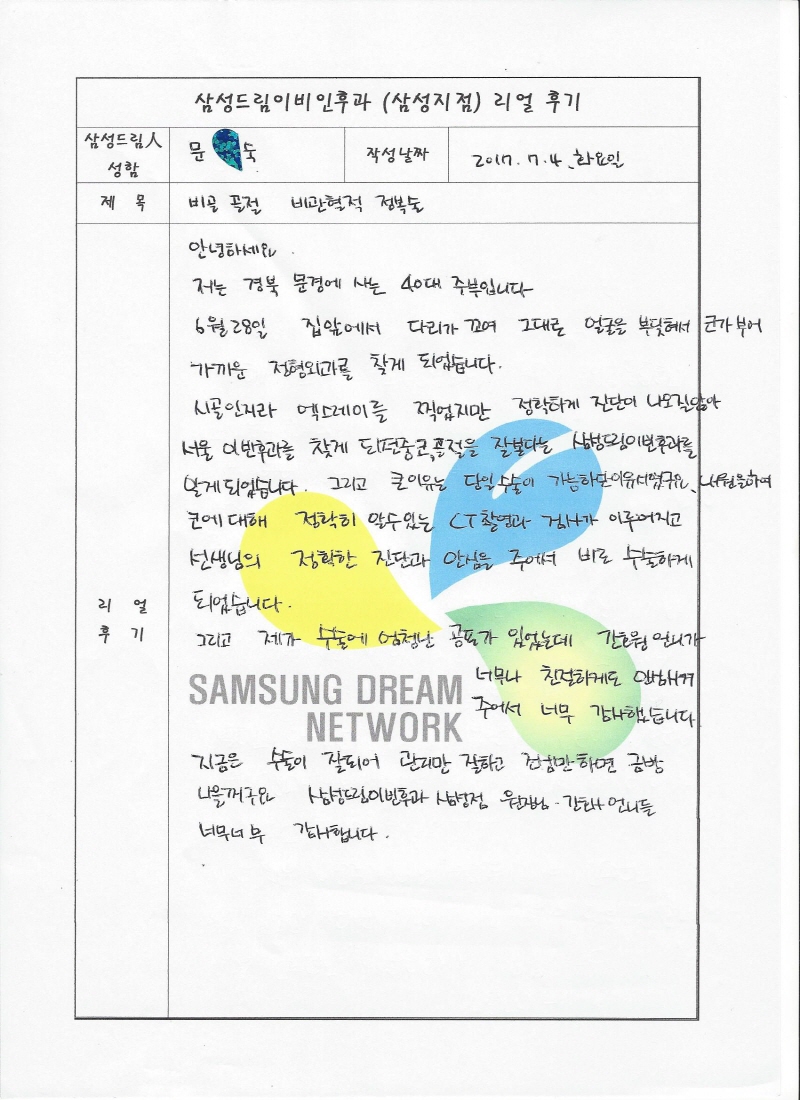 삼성드림이비인후과 (삼성지점) 리얼 후기
삼성드림人
성함
문 숙
작성날짜
2017. 7. 4. 화요일
제 목
비골 골절 비관혈적 정복술
안녕하세요.
저는 경북 문경에 사는 40대 주부입니다
6월 28일 집앞에서 다리가 꼬여 그대로 얼굴을 부딪혀서 코가 부어
가까운 정형외과를 찾게 되었습니다.
시골인지라 엑스레이를 찍었지만 정확하게 진단이 나오질않아
서울 이빈후과를 찾게 되던중코,골절을 잘본다는 삼성드림이빈후과를
알게되었습니다. 그리고 큰이유는 당일수술이 가능하단이유서였구요, 내원을하여
코에대해 정확히 알수있는 CT촬영과 검사가 이루어지고
선생님의 정확한 진단과 안심을 주어서 바로 수술하게
되었습니다.
그리고 제가 수술에 엄청난 공포가 있었는데 간호원 언니가
너무나 친절하게도 안심시켜
주어서 너무 감사했습니다
리 얼
후 기
SAMSUNG DREAM
NETWORK
지금은 수술이 잘되어 관리만 잘하고 조심만하면 금방
나을꺼구요 삼성드림이빈후과 삼성점 원장님·간호사 언니들
너무너무 감사합니다.